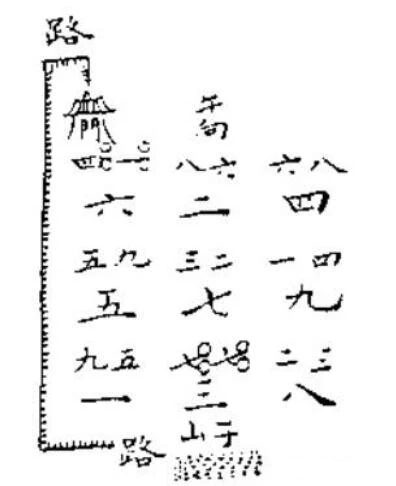 路
門
午
向
四一 八六 六八
六 二 四
五九 三二 一四
五 七 九
九五 七七 二三
一 三 八
山子
路